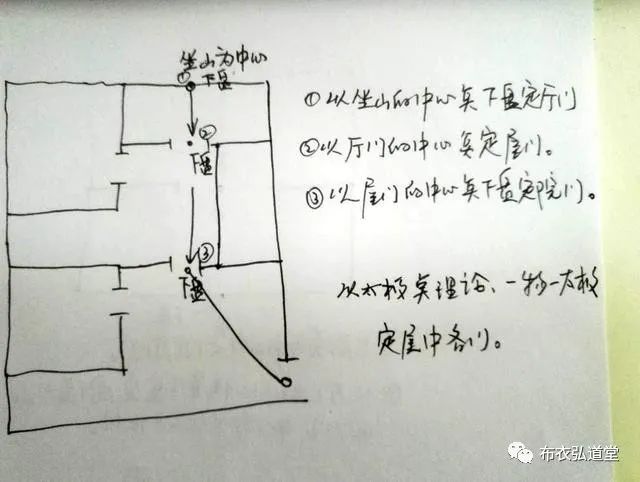 坐山为中心
①
下盘
②
下盘
③
下盘
①以坐山的中心点下盘定厅门
②以厅门的中心点定屋门。
③以屋门的中心点下盘定院门。
以太极点理论、一物一太极
定屋中各门。
布衣弘道堂